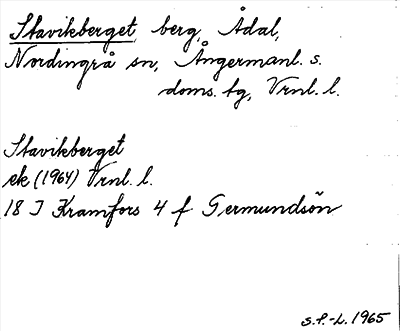 Stavikberget, berg, Ådal,
Nordingrå sn, Ångermanl. s.
doms. tg, Vrnl. l.
Stavikberget
ek (1964) Vrnl. l.
18 I Kramfors 4 f Germundsön
S.P.-L. 1965